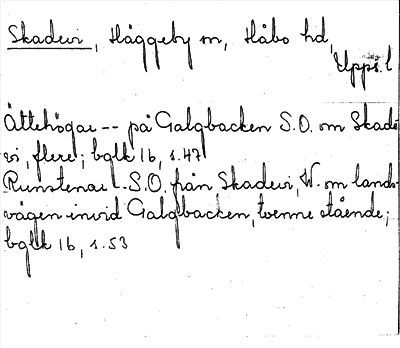 Skadevi, Häggeby sn, Håbo hd,
Upps. l
Ättehögar -- på Galgbacken S.O. om Skade-
vi, flere; bglk 16, s. 47
Runstenar -- S.O. från Skadevi, W. om lands-
vägen invid Galgbacken, tvenne stående;
bglk 16, s. 53